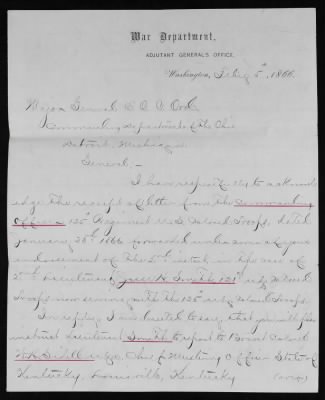 War Department,
ADJUTANT GENERAL'S OFFICE,
Washington, Feby 5th, 1866.
Major General E. O. C. Ord
Commanding Department of the Ohio
Detroit, Michigan
General,-
I have respectfully to acknowl-
edge the receipt of letter from the Commanding
Officer 125th Regiment U.S. Colored Troops, dated
January 28th 1866 forwarded under cover of your
endorsement of the instant, in the case of
2nd Lieutenant Smith, U.S. Colored
Troops now serving with the 125th U.S. Colored Troops.
In reply, I am directed to say, that you will please
instruct Lieutenant Smith to report to Brevet Colonel
W. H. Sidell U.S.A. Chief Mustering Officer State of
Kentucky, Louisville, Kentucky
(over)